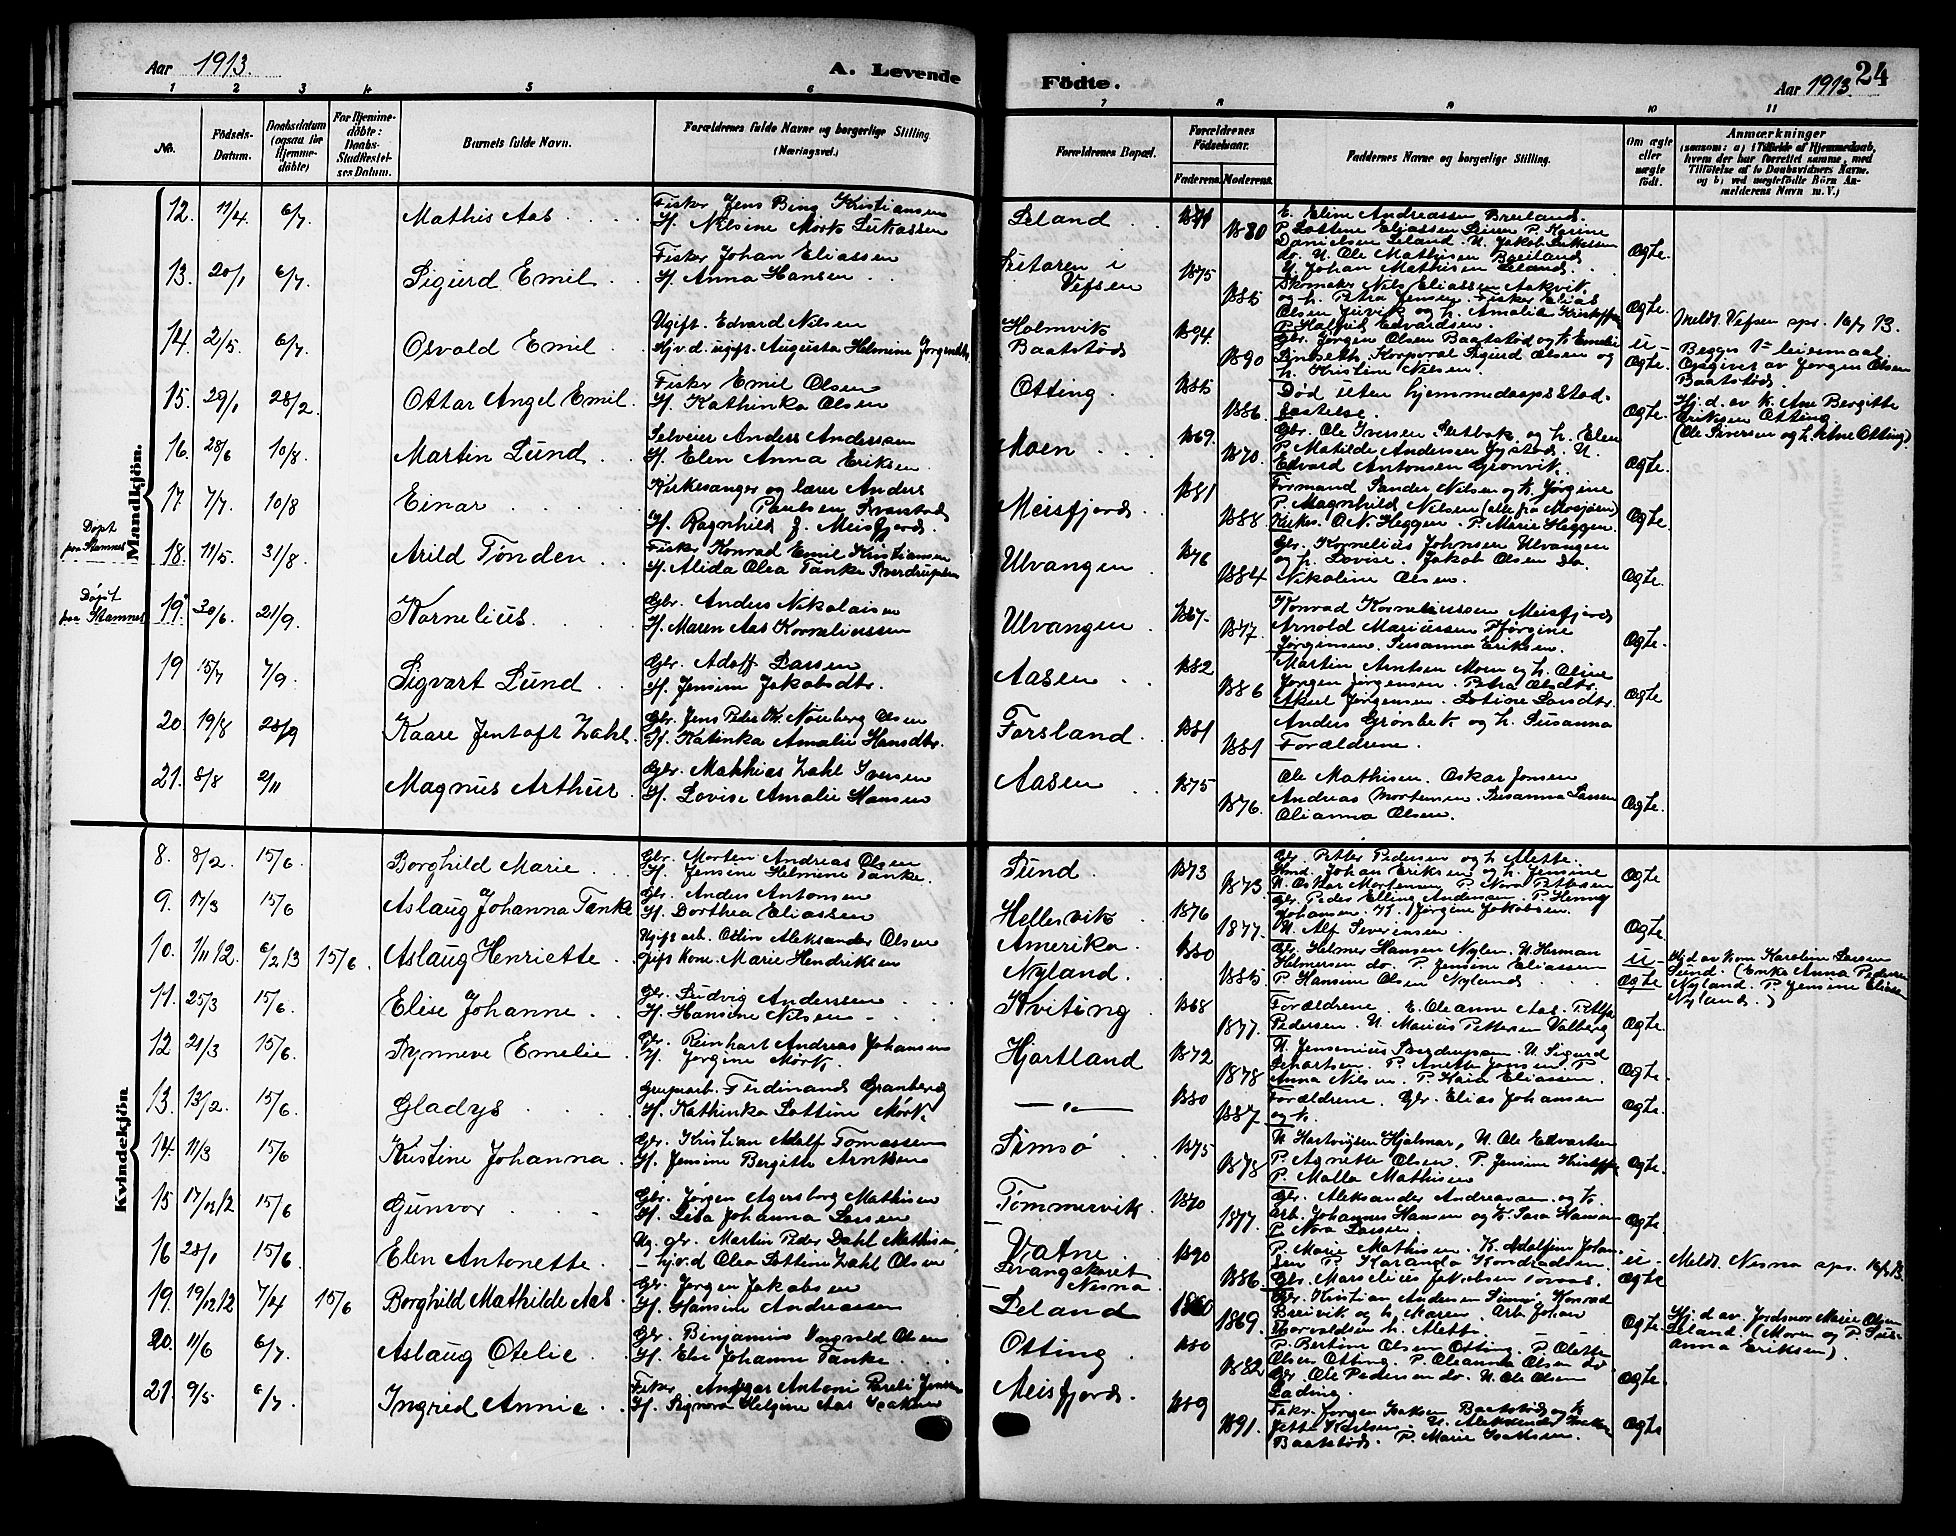 Aar 1913.
A. Levende
Födte.
Aar 1913.
24
1 2 3 4 5 6 7 8 9 10 11
No.
Födsels-Datum.
Daabsdatum (ogsaa for Hjemme-döbte)
For Hjemme-döbte: Daabs-Stadfæstel-ses Datum.
Barnets fulde Navn.
Forældrenes fulde Navne og borgerlige Stilling.
(Næringsvei.)
Forældrenes Bopæl.
Forældrenes Födselsaar.
Faderens. Moderens.
Faddernes Navne og borgerlige Stilling.
Om ægte eller uægte födt.
Anmærkninger
(saasom: a) i Tilfælde af Hjemmedaab, hvem der har forrettet samme, med Tilföielse af to Daabsvidners Navne. og b) ved uægtefödte Börn Anmelderens Navn m. V.)
Mandkjön.
12. 11/4 6/7 Mathis Aas
Fisker Jens Bing Kristiansen
H. Nilsine Mørk Lukassen
Leland 1880
E. Eline Andreassen Breiland.
Danielsen Leland. U. Jakob Lukassen
do. U. Ole Mathisen Breiland
U. Johan Mathisen Leland.
Ægte.
13. 20/1 6/7 Sigurd Emil
Fisker Johan Eliassen
H. Anna Hansen
i Vefsen 1875 1885
Skomaker Nils Eliassen Aakvik
og h. Petra Jensen. Fisker Elias
P. Halfrid Edvardsen.
Ægte.
Meldt Vefsen spr. 16/7 13.
14. 2/5 6/7 Osvald Emil
Ugift. Edvard Nilsen
Hjv. d. ugift. Augusta Helmine Jørgensdtr.
Holmvik
Baatstød 1894 1890
Gbr. Jørgen Olsen Baatstød og h. Emelie
Korporal Sigurd Olsen og
h. Kristine Nilsen.
u- Ægte.
Begges 1ste leiermaal
Opgivet av Jørgen Olsen
Baatstød.
15. 29/1 28/2 Ottar Angel Emil
Fisker Emil Olsen
H. Kathinka Olsen
Otting 1885 1886.
Død uten hjemmedaapsstad-
fæstelse.
Ægte.
Hj. d. av k. Ane Bergitte
Eriksen Otting
(Ole Iversen og h. Ane Otting)
16. 28/6 10/8 Martin Lund
Selveier Anders Anderssen
H. Elen Anna Eriksen
Moen 1869. 1870.
Gbr. Ole Iversen og h. Elen
P. Matilde Andersen U.
Edvard Antonsen Grønvik.
Ægte.
17 7/7 10/8 Einar
Kirkesanger og lærer Anders
Paulsen
H. Ragnhild f. Meisfjord.
Meisfjord 1881 1888
Formand Sander Nilsen og h. Jørgine
P. Magnhild Nilsen (alle fra Mosjøen)
Kirkes. O. N. Heggen. P. Marie Heggen.
Ægte
Døpt
paa Stamnes
18. 11/5 31/8 Arild Tønden
Fisker Konrad Emil Kristiansen
H. Alida Olea Tanke Sverdrupsen
Ulvangen 1876 1884
Gbr. Kornelius Johnsen Ulvangen
og h. Lovise. Jakob Olsen do.
Nikoline Olsen.
Ægte.
Døpt
paa Stamnes
19. 30/6 21/9 Kornelius
Gbr. Anders Nikolaisen
H. Maren Aas Korneliussen
Ulvangen 1867. 1877.
Konrad Korneliussen Meisfjord
Arnold Mariussen Jørgine
Jørginsen. Susanna Eriksen.
Ægte.
19 15/7 7/9 Sigvart Lund
Gbr. Adolf Larsen
H. Jensine Jakobsdtr.
Aasen 1882 1886
Martin Arntsen Moen og h. Oline
Jørgen Jørgensen. Petra Olsdtr.
Aksel Jørgensen. Lotine Larsdtr.
Ægte
20. 19/8 28/9 Kaare Jentoft Zahl
Gbr. Jens Peder Kr. Nouberg Olsen
H. Katinka Amalie Hansdtr.
Forsland 1881 1881
Anders Grønbek og h. Susanna
Forældrene.
21. 8/8 2/11 Magnus Arthur
Gbr. Mathias Zahl Iversen
H. Lovise Amalie Hansen
Aasen 1875 1876.
Ole Mathisen. Oskar Jonsen
Andreas Mortensen. Susanna Larsen
Olianna Olsen.
Ægte.
Kvindekjön
8. 8/2. 15/6. Borghild Marie
Gbr. Morten Andreas Olsen
H. Jensine Helmine Tanke.
Sund. 1873 1873
Gbr. Petter Pedersen og h. Alette.
Johan Eriksen og h. Jensine
U. Oskar Mortensen P. Nora Pettersen
Ægte
9. 17/3 15/6 Aslaug Johanna Tanke
Gbr. Anders Antonsen
H. Dorthea Eliassen
Hellesvik 1876 1877.
Gbr. Peder Elling Andersen. P. Henny
Johansen. K. Jørgine Jakobsen.
U. Alf Severinsen
Ægte.
10. 1/11 12. 6/2 13 15/6. Aslaug Henriette
Ugift arb. Ottin Aleksander Olsen
Gift kone. Marie Hendriksen
Amerika
Nyland. 1880 1885
Gbr. Helmer Hansen Nylen. U. Herman
Helmersen do. P. Jensine Eliassen
P. Hansine Olsen Nyland
u- Ægte
Hj. d. av kone Karoline Larsen
Sund. (Enke Anna Pedersen
Nyland. P. Jensine Eliassen
Nyland.)
11. 25/3 15/6. Elise Johanne
Gbr. Ludvig Anderssen
H. Hansine Nilsen
Kviting 1868 1877.
Forældrene. E. Oleanne Aas.
Pedersen. U. Marius Pettersen Valberg
Ægte.
12 21/3 15/6. Synneve Emelie
Gbr. Reinhart Andreas Johansen
H. Jørgine Mørk.
Hjartland 1872 1878
U. Jensenius U. Sigurd
P. Anette Jonsen. P.
Anna Nilsen. P. Kaia Eliassen.
Ægte.
13. 13/2. 15/6. Gladys
Grupearb. Ferdinand Granberg
H. Kathinka Lottine Mørk
— " — 1880 1887.
Forældrene. Gbr. Elias Johansen
og h.
Ægte.
14. 11/3 15/6 Kristine Johanna
Gbr. Kristian Adolf Tomassen
H. Jensine Bergitte Arntsen
Simsø 1875 1878
U. Hartvigsen Hjalmar, U. Ole Edvartsen
P. Agnette Olsen. P. Jensine
P. Malla Mathisen
Ægte.
15 17/12 12 15/6 Gunvor
Gbr. Jørgen Agersborg Mathisen
H. Lisa Johanna Larsen
Tømmervik 1870 1877.
Gbr. Aleksander Andreassen og h.
Arb. Johannes Hansen og h. Sara Hansen
P. Nora Larsen
Ægte.
16 28/1 15/6. Elen Antonette
Ug. gbr. Martin Peder Dahl Mathisen,
— hjv. d. Olea Lottine Zahl Olsen
Vatne.
Nesna 1890 1886.
P. Marie Mathisen. K. Adolfine Johan-
sen P. Karanda Konradsen
Gbr. Marselius Jakobsen
u- Ægte
Meldt Nesna spr. 16/7 13.
19. 19/12 12 7/4 15/6 Borghild Mathilde Aas
Gbr. Jørgen Jakobsen
H. Hansine Andreassen
Leland 1860 1869.
Gbr. Kristian Andersen Simsø, Konrad
Breivik og h. Maren. Arb. Johan
Thorvaldsen h. Alette
Ægte.
Hj. d. av. Jordmor Marie Olsen
Leland (Moren og P. Sus-
anna Eriksen).
20. 11/6 6/7. Aslaug Otelie
Gbr. Binjamin Ingvald Olsen
H. Else Johanne Tanke
Otting 1880 1882
P. Bertine Olsen Otting. P. Olette
Olsen Otting. P. Oleanna Olsen do.
Gbr. Ole Pedersen do. U. Ole Olsen
Ægte.
21. 9/5 6/7. Ingrid Annie
Fisker Ansgar Antoni Jensen
H. Signora Helgine Aas Isaksen
Meisfjord. 1889 1891.
Fisker Jørgen Isaksen Baatstød og h.
Jette Karlsen. U. Aleksander
Baatstød. P. Marie Isaksen.
Ægte